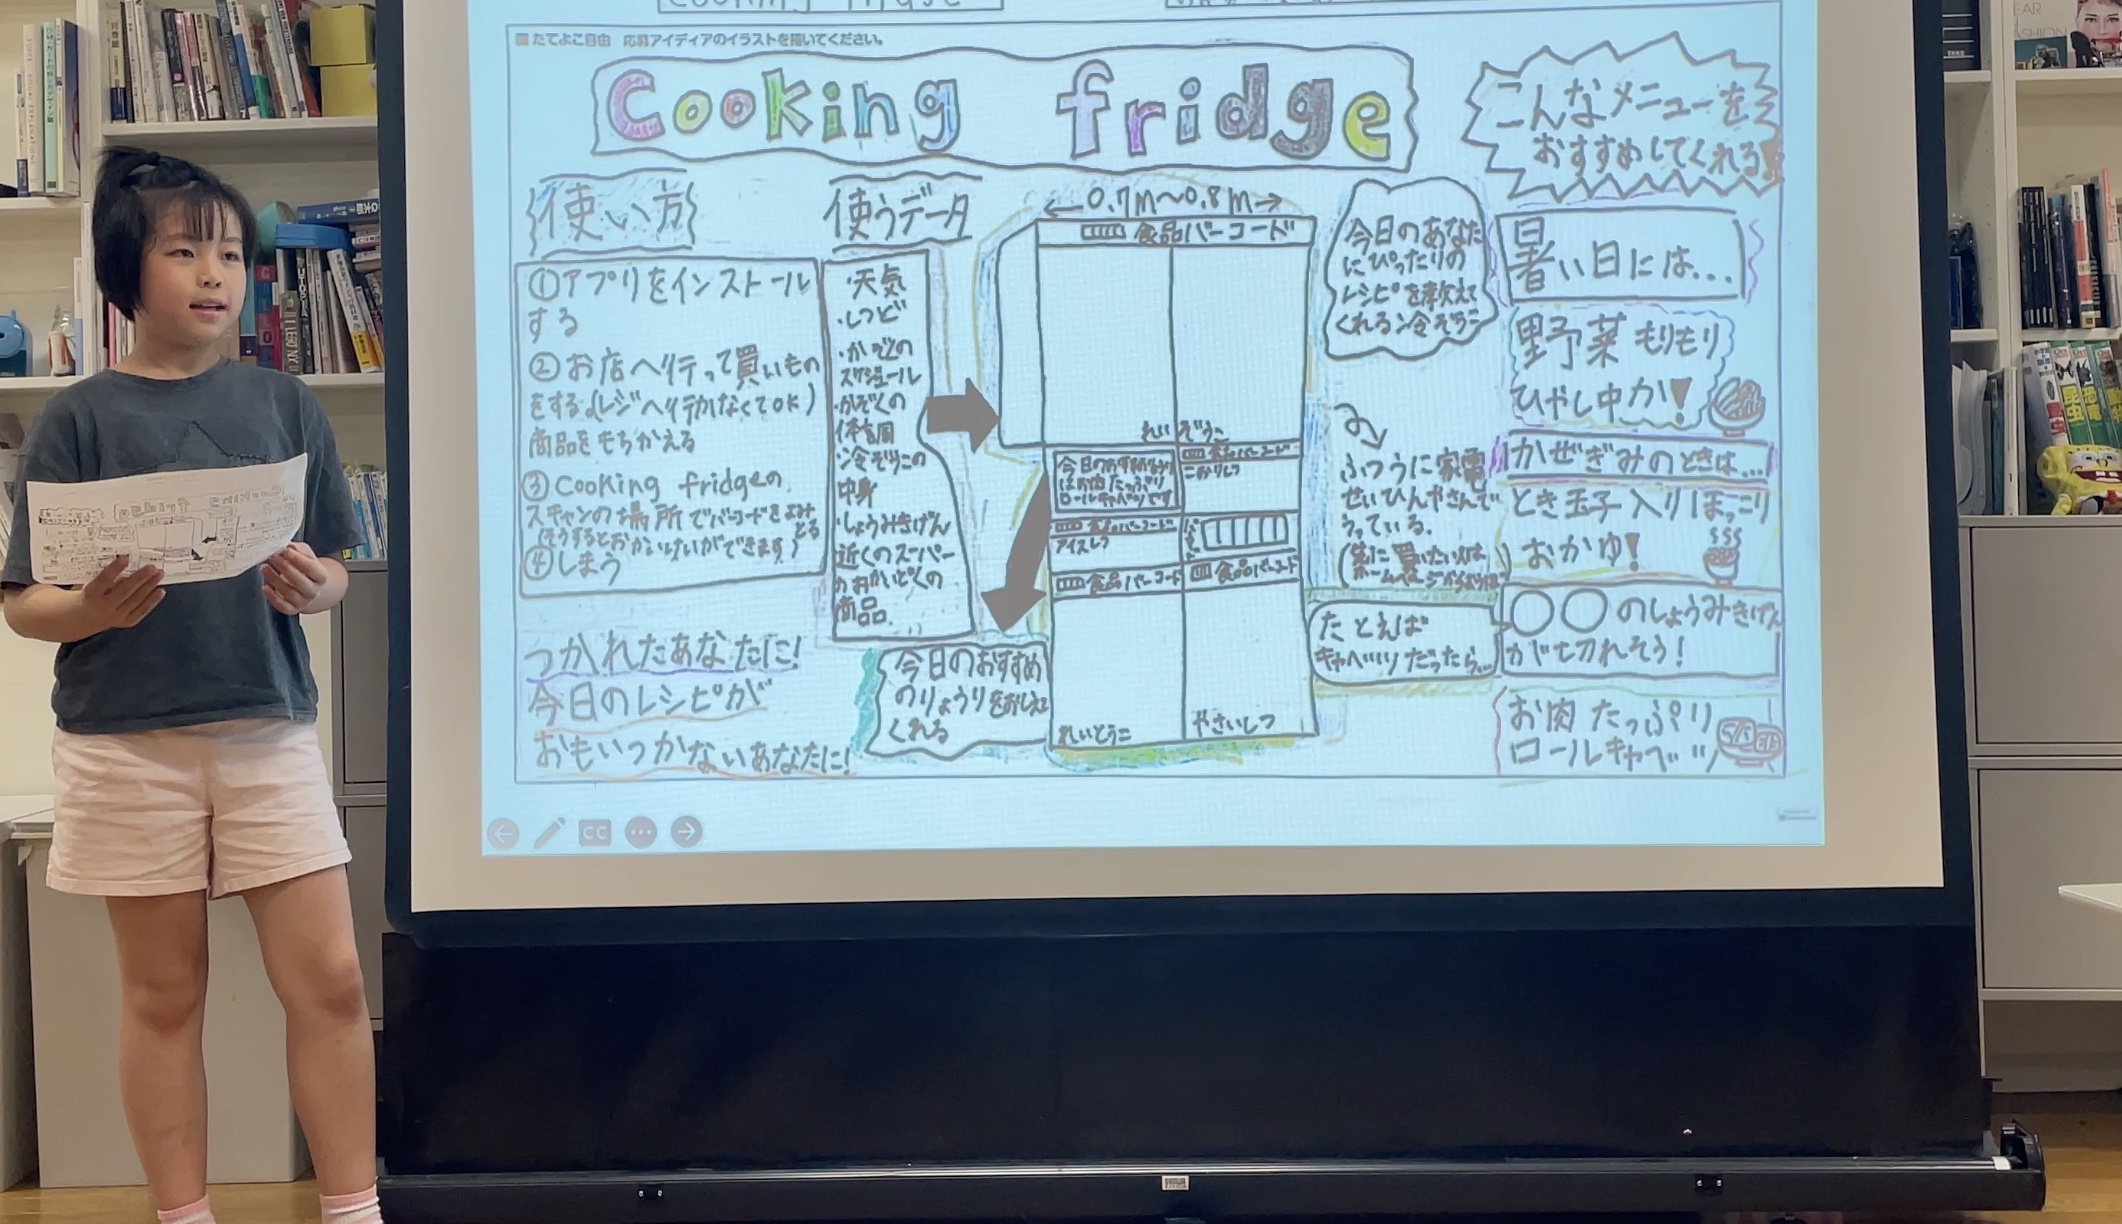 たてよこ自由　応募アイディアのイラストを描いてください。
Cooking fridge
こんなメニューを
おすすめしてくれる!
使い方
①アプリをインストール
する
②お店へ行って買いもの
をする。(レジへ行かなくてOK)
商品をもちかえる
③cooking fridgeの
スキャンの場所でバーコードをよみ
とる
(そうするとおかいけいができます)
④しまう
つかれたあなたに!
今日のレシピが
おもいつかないあなたに!
使うデータ
・天気
・しつど
・かぞくの
スケジュール
・かぞくの
体調
・冷ぞうこの
中身
・しょうみきげん
近くのスーパー
のおかいどくの
商品
0.7m〜0.8m
食品バーコード
れいぞうこ
今日のおすすめ
はお肉たっぷり
ロールキャベツです
食品バーコード
こおりしつ
食品バーコード
アイスしつ
食品バーコード
食品バーコード
れいとうこ
やさいしつ
今日のおすすめ
のりょうりをおしえて
くれる
今日のあなた
にぴったりの
レシピを教えて
くれる冷ぞうこ
ふつうに家電
せいひんやさんで
うっている。
たとえば
キャベツだったら...
暑い日には...
野菜もりもり
ひやし中か!
かぜぎみのときは...
とき玉子入りほっこり
おかゆ!
〇〇のしょうみきげん
が切れそう!
お肉たっぷり
ロールキャベツ
CC